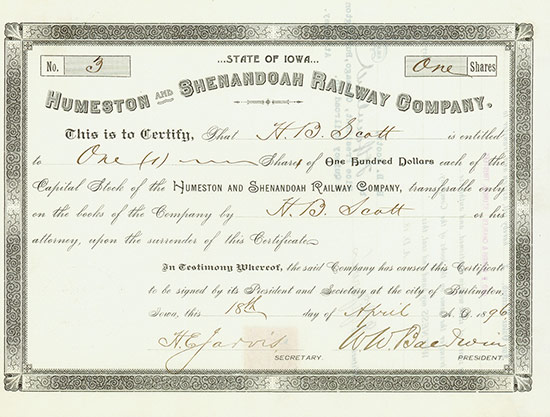 ...STATE OF IOWA...
No. 3
One Shares
HUMESTON AND SHENANDOAH RAILWAY COMPANY.
This is to Certify, That H. B. Scott is entitled
to One (1) Shares of One Hundred Dollars each of the
Capital Stock of the HUMESTON AND SHENANDOAH RAILWAY COMPANY, transferable only
on the books of the Company by H. B. Scott or his
attorney, upon the surrender of this Certificate
In Testimony Whereof, the said Company has caused this Certificate
to be signed by its President and Secretary at the city of Burlington,
Iowa, this 18th day of April A. D. 1896.
H. E. Jarvis
SECRETARY.
W W Baldwin
PRESIDENT.